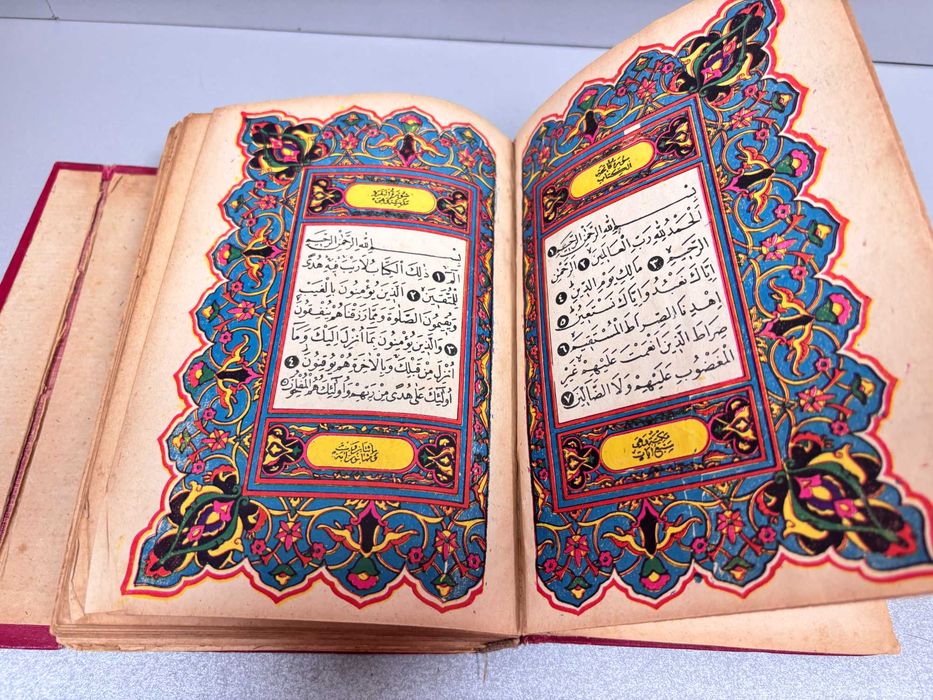 سورة فاتحة
الكتاب
بسم الله الرحمن الرحيم ١
الحمد لله رب العالمين ٢ الرحمن
الرحيم ٣ مالك يوم الدين ٤
اياك نعبد واياك نستعين ٥
اهدنا الصراط المستقيم ٦
صراط الذين انعمت عليهم غير
المغضوب عليهم ولا الضالين ٧
سبع ايات
سورة البقرة
بسم الله الرحمن الرحيم
الم ١ ذلك الكتاب لا ريب فيه هدى
للمتقين ٢ الذين يؤمنون بالغيب
ويقيمون الصلوة ومما رزقناهم ينفقون
٣ والذين يؤمنون بما انزل اليك وما
انزل من قبلك وبالاخرة هم يوقنون ٤
اولئك على هدى من ربهم واولئك هم المفلحون ٥